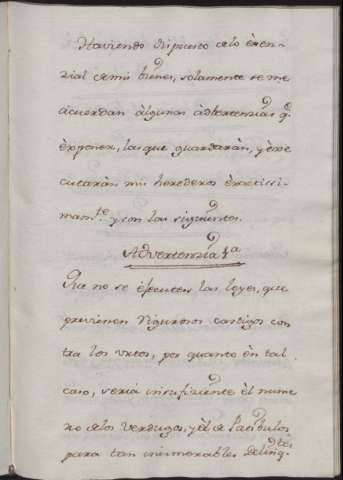 Haviendo dispuesto de lo èsen-
zial de mis bienes, solamente se me
acuerdan àlgunas àdvertenzias q.e
èxponer, las que guardaràn, y èxe-
cutaràn mis herederos èxactissi-
mam.te y son las siguientes.
Advertenzia 1.a
Que no se èjecuten las leyes, que
previenen rigurosos castigos con
tra los
por quanto èn tal
caso, seria insufiziente èl nume
ro de los Verdugos, y èl de Patibulos
para tan inumerables delinq.tes